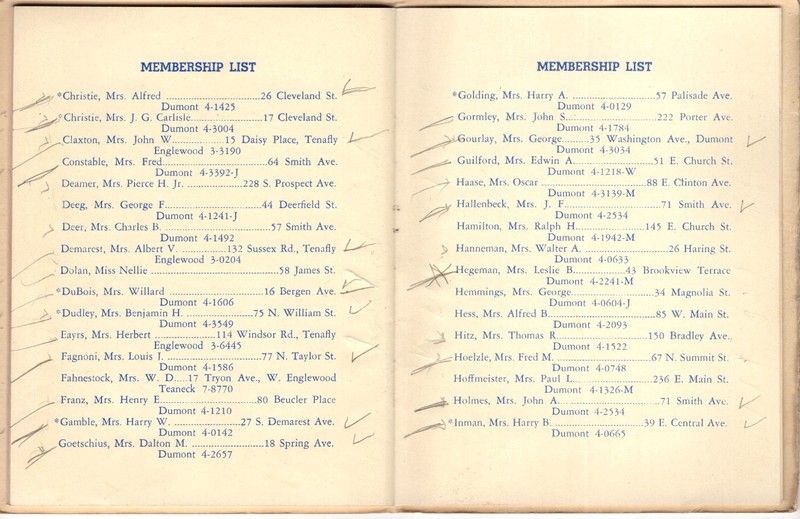 MEMBERSHIP LIST
*Christie, Mrs. Alfred ..............................26 Cleveland St.
Dumont 4-1425
*Christie, Mrs. J. G. Carlisle......................17 Cleveland St.
Dumont 4-3004
Claxton, Mrs. John W................15 Daisy Place, Tenafly
Englewood 3-3190
Constable, Mrs. Fred................................64 Smith Ave.
Dumont 4-3392-J
Deamer, Mrs. Pierce H. Jr. .................228 S. Prospect Ave.
Deeg, Mrs. George F...........................44 Deerfield St.
Dumont 4-1241-J
Deer, Mrs. Charles B.................................57 Smith Ave.
Dumont 4-1492
Demarest, Mrs. Albert V. ...............132 Sussex Rd., Tenafly
Englewood 3-0204
Dolan, Miss Nellie .......................................58 James St.
*DuBois, Mrs. Willard ..............................16 Bergen Ave.
Dumont 4-1606
*Dudley, Mrs. Benjamin H. .....................75 N. William St.
Dumont 4-3549
Eayrs, Mrs. Herbert ...................114 Windsor Rd., Tenafly
Englewood 3-6445
Fagnoni, Mrs. Louis J. .............................77 N. Taylor St.
Dumont 4-1586
Fahnestock, Mrs. W. D.....17 Tryon Ave., W. Englewood
Teaneck 7-8770
Franz, Mrs. Henry E..............................80 Beucler Place
Dumont 4-1210
*Gamble, Mrs. Harry W. ....................27 S. Demarest Ave.
Dumont 4-0142
Goetschius, Mrs. Dalton M. .......................18 Spring Ave.
Dumont 4-2657
MEMBERSHIP LIST
*Golding, Mrs. Harry A. .........................57 Palisade Ave.
Dumont 4-0129
Gormley, Mrs. John S............................222 Porter Ave.
Dumont 4-1784
*Gourlay, Mrs. George........35 Washington Ave., Dumont
Dumont 4-3034
Guilford, Mrs. Edwin A........................51 E. Church St.
Dumont 4-1218-W
Haase, Mrs. Oscar ................................88 E. Clinton Ave.
Dumont 4-3139-M
Hallenbeck, Mrs. J. F...............................71 Smith Ave.
Dumont 4-2534
Hamilton, Mrs. Ralph H.....................145 E. Church St.
Dumont 4-1942-M
Hanneman, Mrs. Walter A. .........................26 Haring St.
Dumont 4-0633
Hegeman, Mrs. Leslie B................43 Brookview Terrace
Dumont 4-2241-M
Hemmings, Mrs. George..........................34 Magnolia St.
Dumont 4-0604-J
Hess, Mrs. Alfred B..................................85 W. Main St.
Dumont 4-2093
Hitz, Mrs. Thomas R............................150 Bradley Ave.,
Dumont 4-1522
Hoelzle, Mrs. Fred M. .............................67 N. Summit St.
Dumont 4-0748
Hoffmeister, Mrs. Paul L........................236 E. Main St.
Dumont 4-1326-M
Holmes, Mrs. John A................................71 Smith Ave.
Dumont 4-2534
*Inman, Mrs. Harry B. ...........................39 E. Central Ave.
Dumont 4-0665